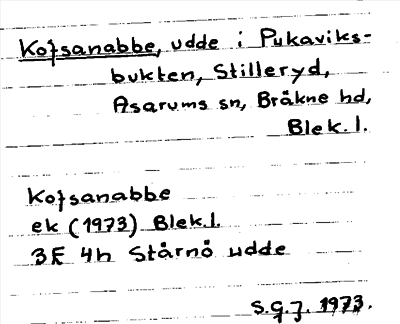 Kofsanabbe, udde i Pukaviks-
bukten, Stilleryd,
Asarums sn, Bräkne hd,
Blek. l.
Kofsanabbe
ek (1973) Blek. l.
3F 4h Stårnö udde
S.G.J. 1973.